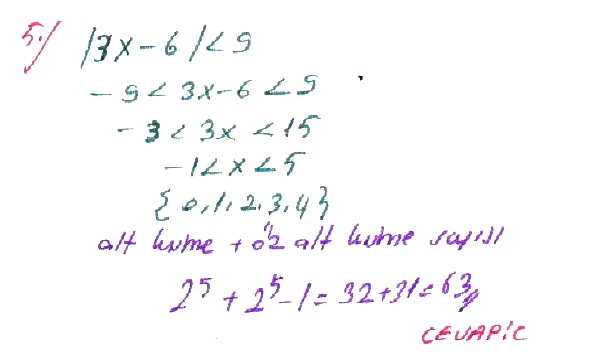 5.) |3x-6|<9
-9<3x-6<9
-3<3x<15
-1<x<5
{0,1,2,3,4}
alt küme + öz alt küme sayısı
2⁵+2⁵-1=32+31=63//
CEVAP:C